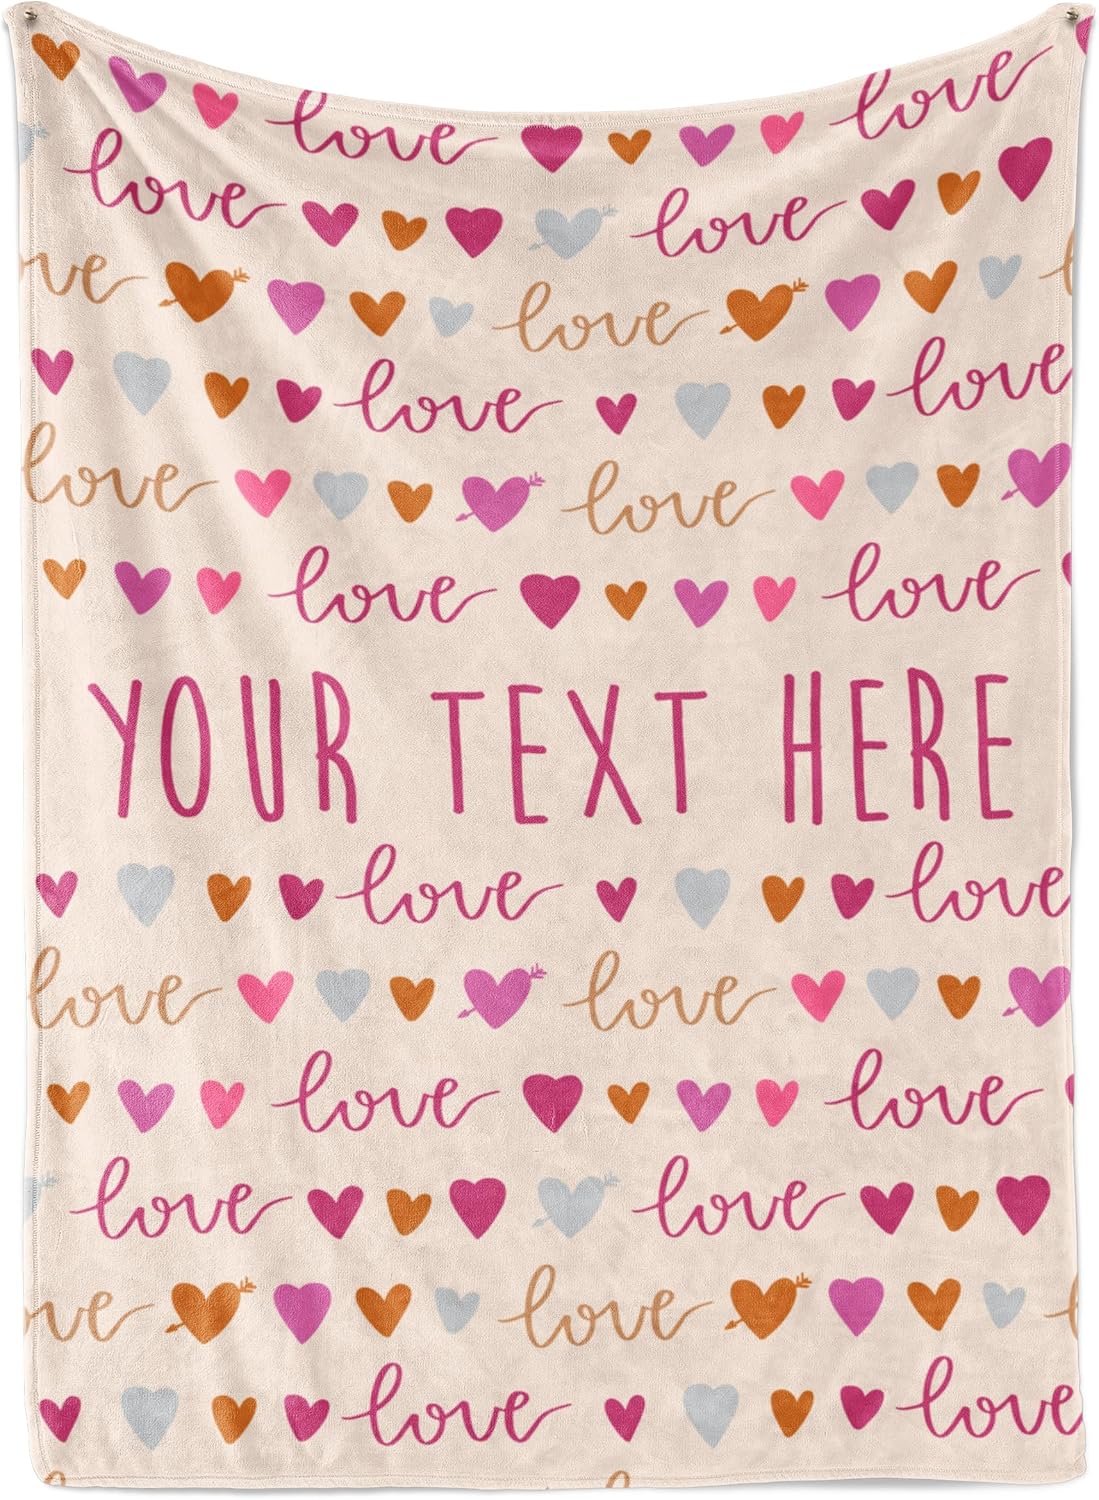 love love
love love
ve love
love love
love love
love love
YOUR TEXT HERE
love love
love love
love love
love love
ve love
love love